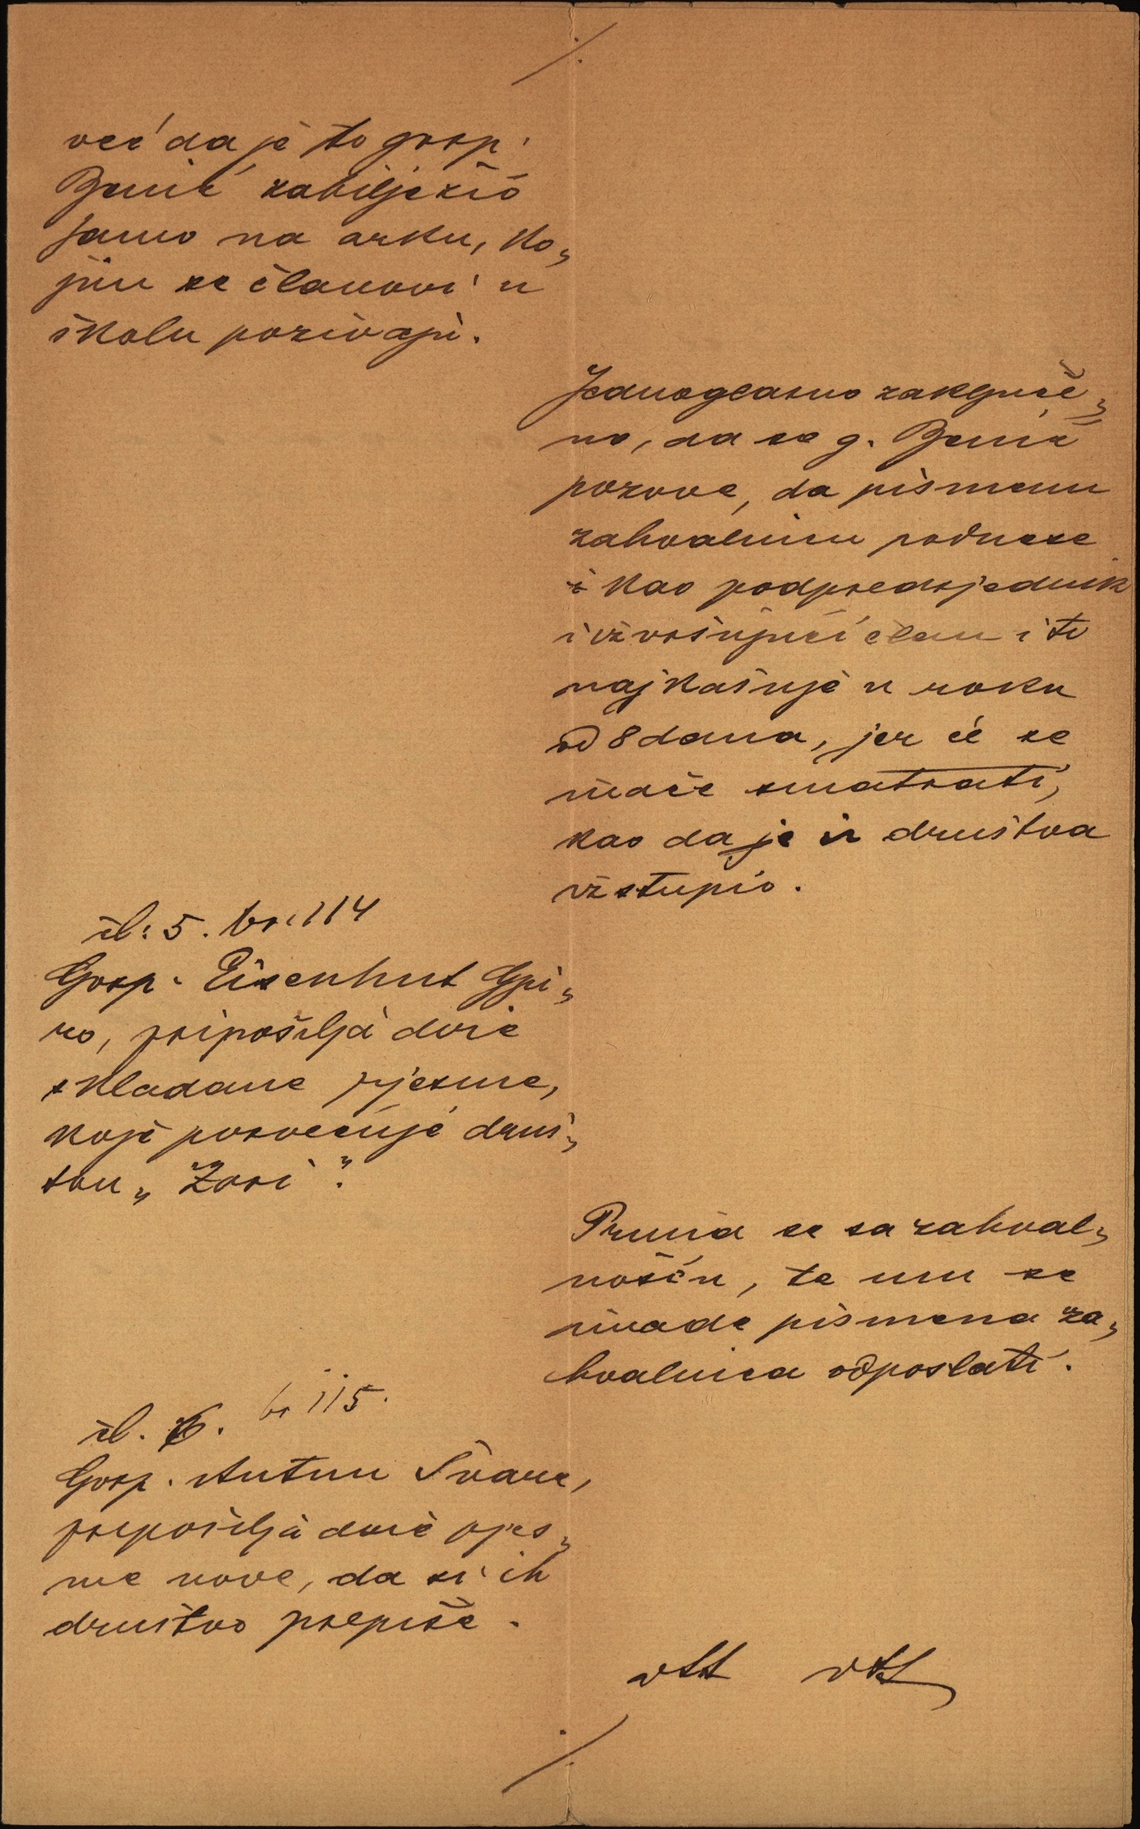 ./.
već da je to gosp.
Benić zabilježio
samo na arku, ko„
jim se članovi u
školu pozivaju.
Jednoglasno zaključe„
no, da se g. Benić
pozove, da pismenu
zahvalnicu podnese
i kao podpredsjednik
i izvršujući član i to
najkašnje u roku
od 8 dana, jer će se
inače smatrati,
kao da je iz društva
izstupio.
čl: 5. br. 114
Gosp. Eisenhut Gju„
ro, pripošilja dvie
skladane pjesme,
koje posvećuje druš„
tvu „Zori".
Prima se sa zahval„
nošću, te mu se
imade pismena za„
hvalnica odposlati.
čl. 6. br 115.
Gosp. Antun Švarc,
pripošilja dvie pjes„
me nove, da si ih
društvo prepiše.
./.